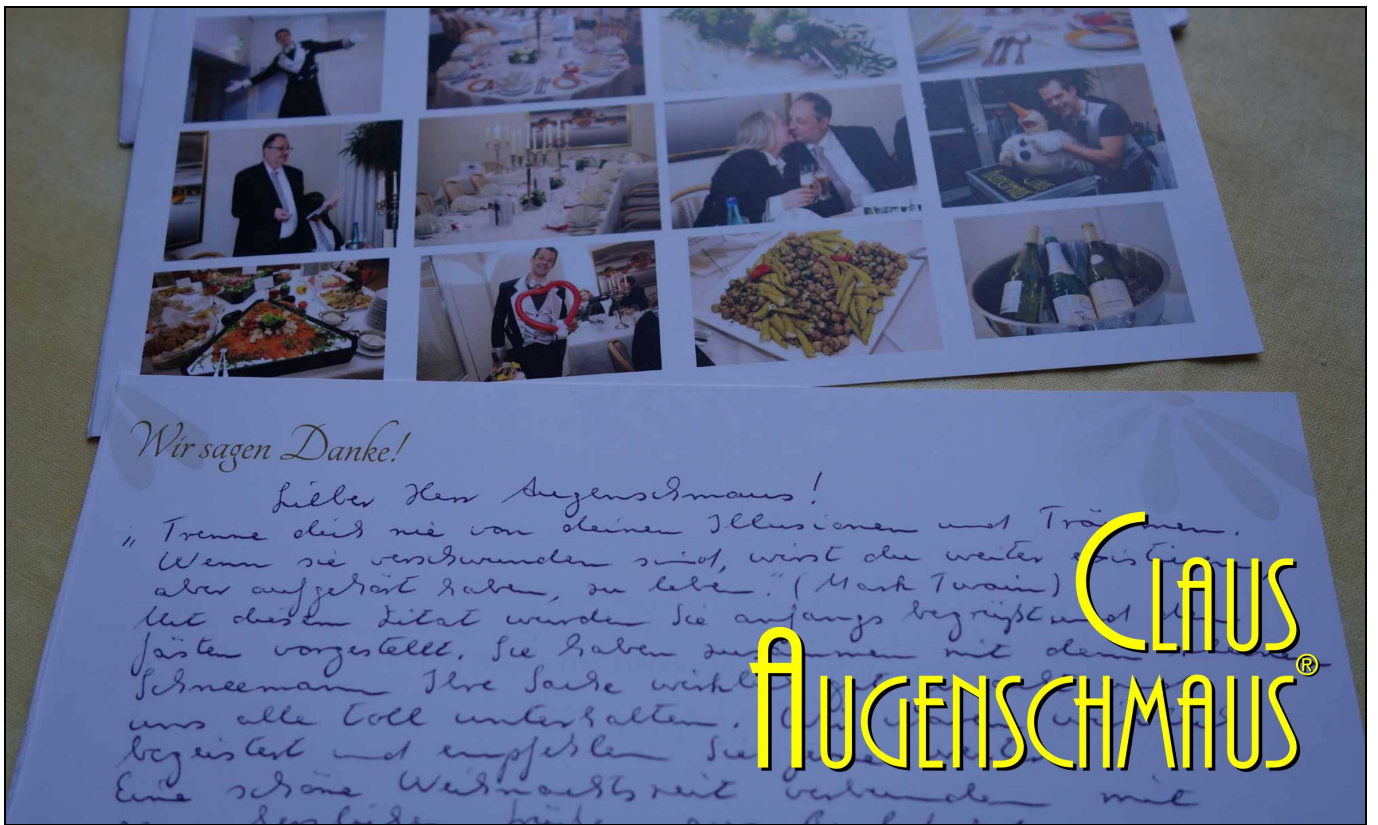 Wir sagen Danke!
Lieber Herr Augenschmaus!
„Trenne dich nie von deinen Illusionen und Träumen.
Wenn sie verschwunden sind, wirst du weiter existieren,
aber aufgehört haben, zu leben." (Mark Twain)
Mit diesem Zitat wurden Sie anfangs begrüßt und den
Gästen vorgestellt. Sie haben zusammen mit dem
Schneemann Ihre Sache wirklich
uns alle toll unterhalten.
begeistert und empfehlen Sie
Eine schöne Weihnachtszeit verbunden mit
CLAUS
AUGENSCHMAUS®